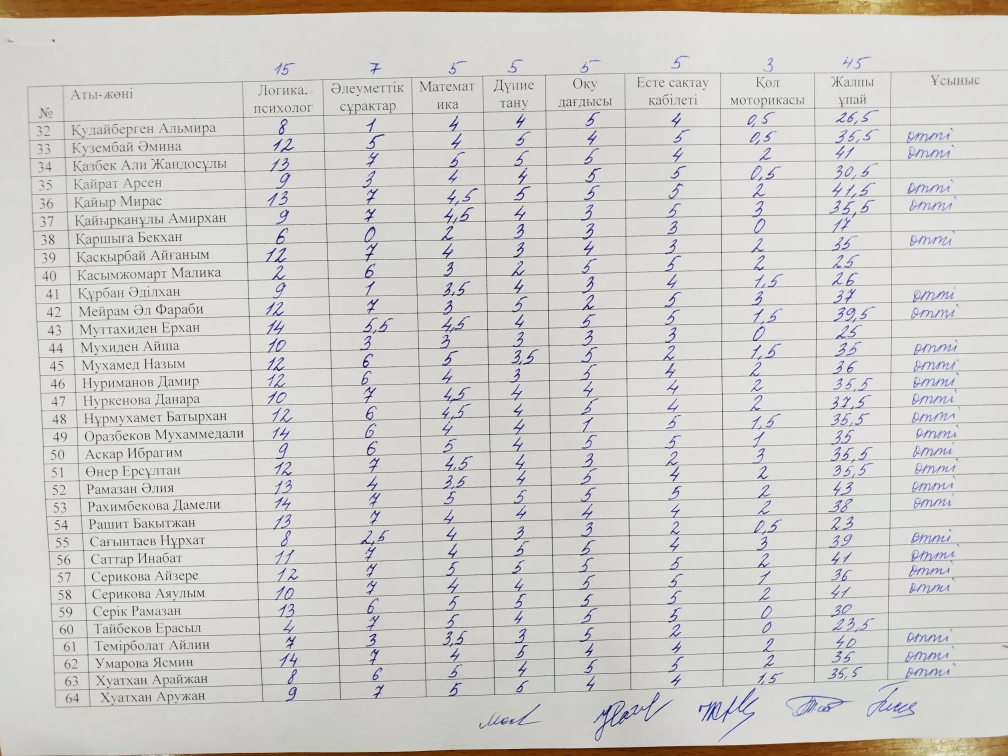 15 7 5 5 5 5 3 45
№ Аты-жөні Логика. психолог Әлеуметтік сұрақтар Математ ика Дүние тану Оқу дағдысы Есте сақтау қабілеті Қол моторикасы Жалпы ұпай Ұсыныс
32 Құдайберген Альмира 8 1 4 4 5 4 0,5 26,5
33 Кузембай Әмина 12 5 4 5 4 5 0,5 35,5 өтті
34 Қазбек Али Жандосұлы 13 7 5 5 5 4 2 41 өтті
35 Қайрат Арсен 9 3 4 4 5 5 0,5 30,5
36 Қайыр Мирас 13 7 4,5 5 5 5 2 41,5 өтті
37 Қайырқанұлы Амирхан 9 7 4,5 4 3 5 3 35,5 өтті
38 Қаршыға Бекхан 6 0 2 3 3 3 0 17
39 Қаскырбай Айғаным 12 7 4 3 4 3 2 35 өтті
40 Касымжомарт Малика 2 6 3 2 5 5 2 25
41 Құрбан Әділхан 9 1 3,5 4 3 4 1,5 26
42 Мейрам Әл Фараби 12 7 3 5 2 5 3 37 өтті
43 Муттахиден Ерхан 14 5,5 4,5 4 5 5 1,5 39,5 өтті
44 Мухиден Айша 10 3 3 3 3 3 0 25
45 Мухамед Назым 12 6 5 3,5 5 2 1,5 35 өтті
46 Нуриманов Дамир 12 6 4 3 5 4 2 36 өтті
47 Нуркенова Данара 10 7 4,5 4 4 4 2 35,5 өтті
48 Нұрмухамет Батырхан 12 6 4,5 4 5 4 2 37,5 өтті
49 Оразбеков Мухаммедали 14 6 4 4 1 5 1,5 35,5 өтті
50 Аскар Ибрагим 9 6 5 4 5 5 1 35 өтті
51 Өнер Ерсұлтан 12 7 4,5 4 3 2 3 35,5 өтті
52 Рамазан Әлия 13 4 3,5 4 5 4 2 35,5 өтті
53 Рахимбекова Дамели 14 7 5 5 5 5 2 43 өтті
54 Рашит Бақытжан 13 7 4 4 4 4 2 38 өтті
55 Сағынтаев Нұрхат 8 2,5 4 3 3 2 0,5 23
56 Саттар Инабат 11 7 4 5 5 4 3 39 өтті
57 Серикова Айзере 12 7 5 5 5 5 2 41 өтті
58 Серикова Аяулым 10 7 4 4 5 5 1 36 өтті
59 Серік Рамазан 13 6 5 5 5 5 2 41 өтті
60 Тайбеков Ерасыл 4 7 5 4 5 5 0 30
61 Темірболат Айлин 7 3 3,5 3 5 2 0 23,5
62 Умарова Ясмин 14 7 4 5 4 4 2 40 өтті
63 Хуатхан Арайжан 8 6 5 4 5 5 2 35 өтті
64 Хуатхан Аружан 9 7 5 5 4 4 1,5 35,5 өтті